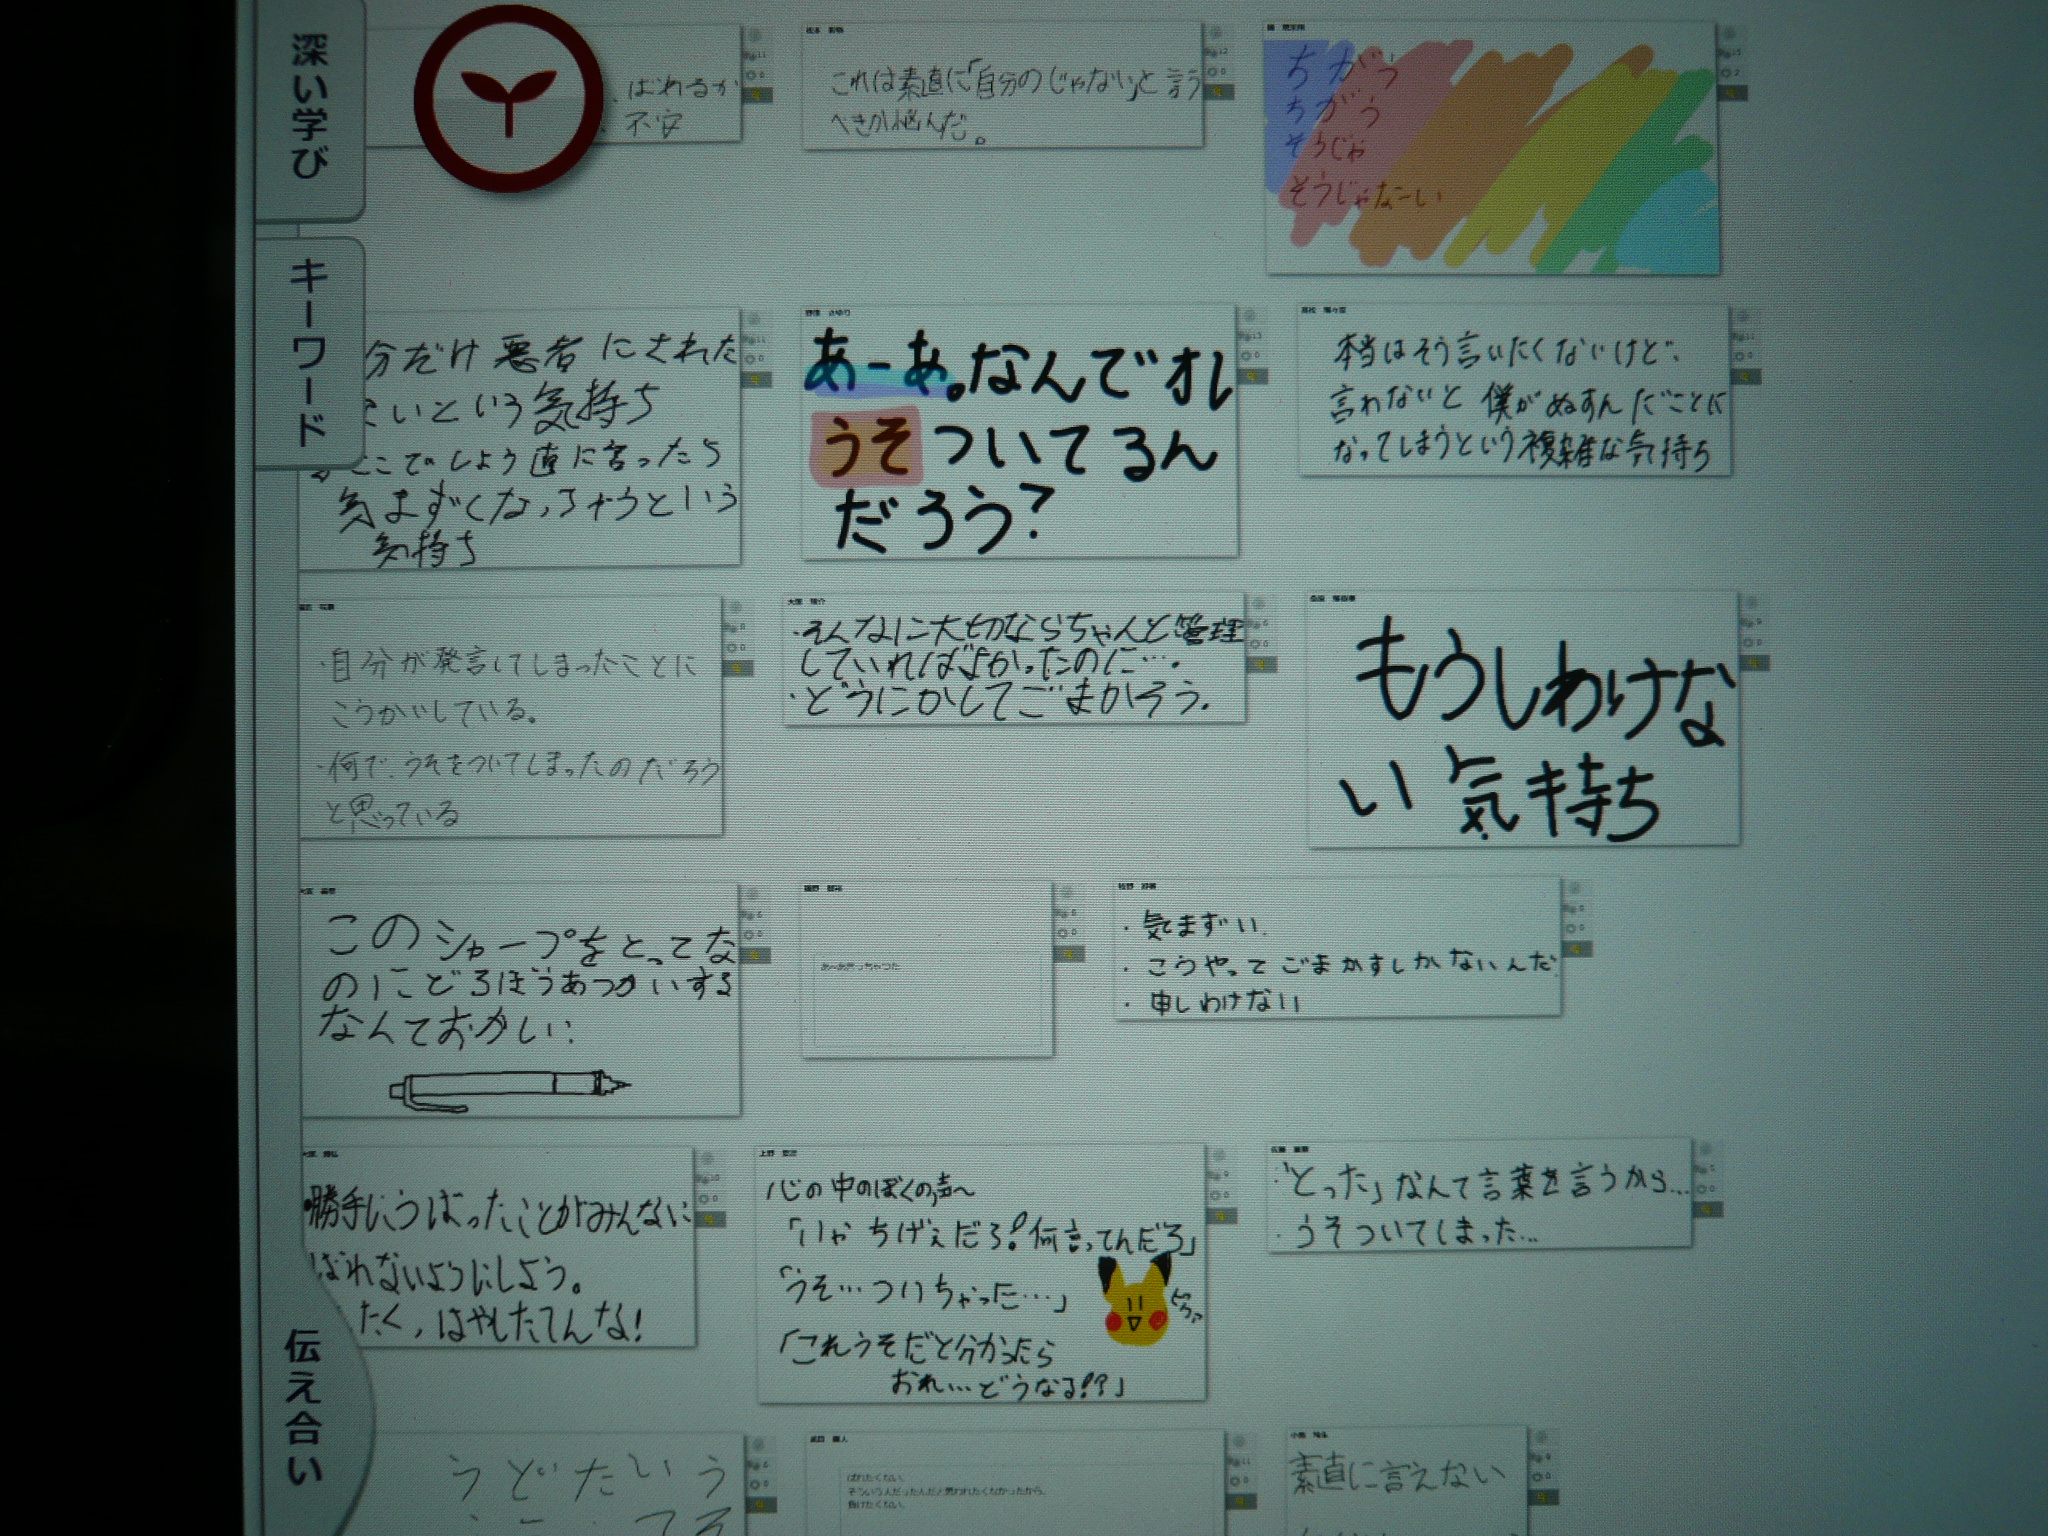 深い学び
キーワード
伝え合い
ばれるか
不安
これは素直に「自分のじゃない」と言う
べきか悩んだ。
ちがう
ちがう
そうじゃ
そうじゃなーい
分だけ悪者にされた
いという気持ち
ここでしょう直に言ったら
気まずくなっちゃうという
気持ち
あーあ。なんでオレ
うそついてるん
だろう?
本当はそう言いたくないけど、
言わないと僕がぬすんだことに
なってしまうという複雑な気持ち
・自分が発言してしまったことに
こうかいしている。
・何で、うそをついてしまったのだろう
と思っている
・そんなに大切ならちゃんと管理
していればよかったのに…。
・どうにかしてごまかそう。
もうしわけな
い気持ち
このシャープをとってな
のにどろぼうあつかいする
なんておかしい
あ~あ言っちゃった
・気まずい
・こうやってごまかすしかないんだ
・申しわけない
・勝手にうばったことがみんなに
ばれないようにしよう。
たく、はやしたてんな!
上野
心の中のぼくの声~
「いやちげぇだろ!何言ってんだろ」
「うそ…ついちゃった…」
「これうそだと分かったら
おれ…どうなる!?」
・「とった」なんて言葉を言うから…
・うそついてしまった…
うどたいう
ばれたくない。
そういう人だったんだと思われたくなかったから。
負けたくない。
素直に言えない